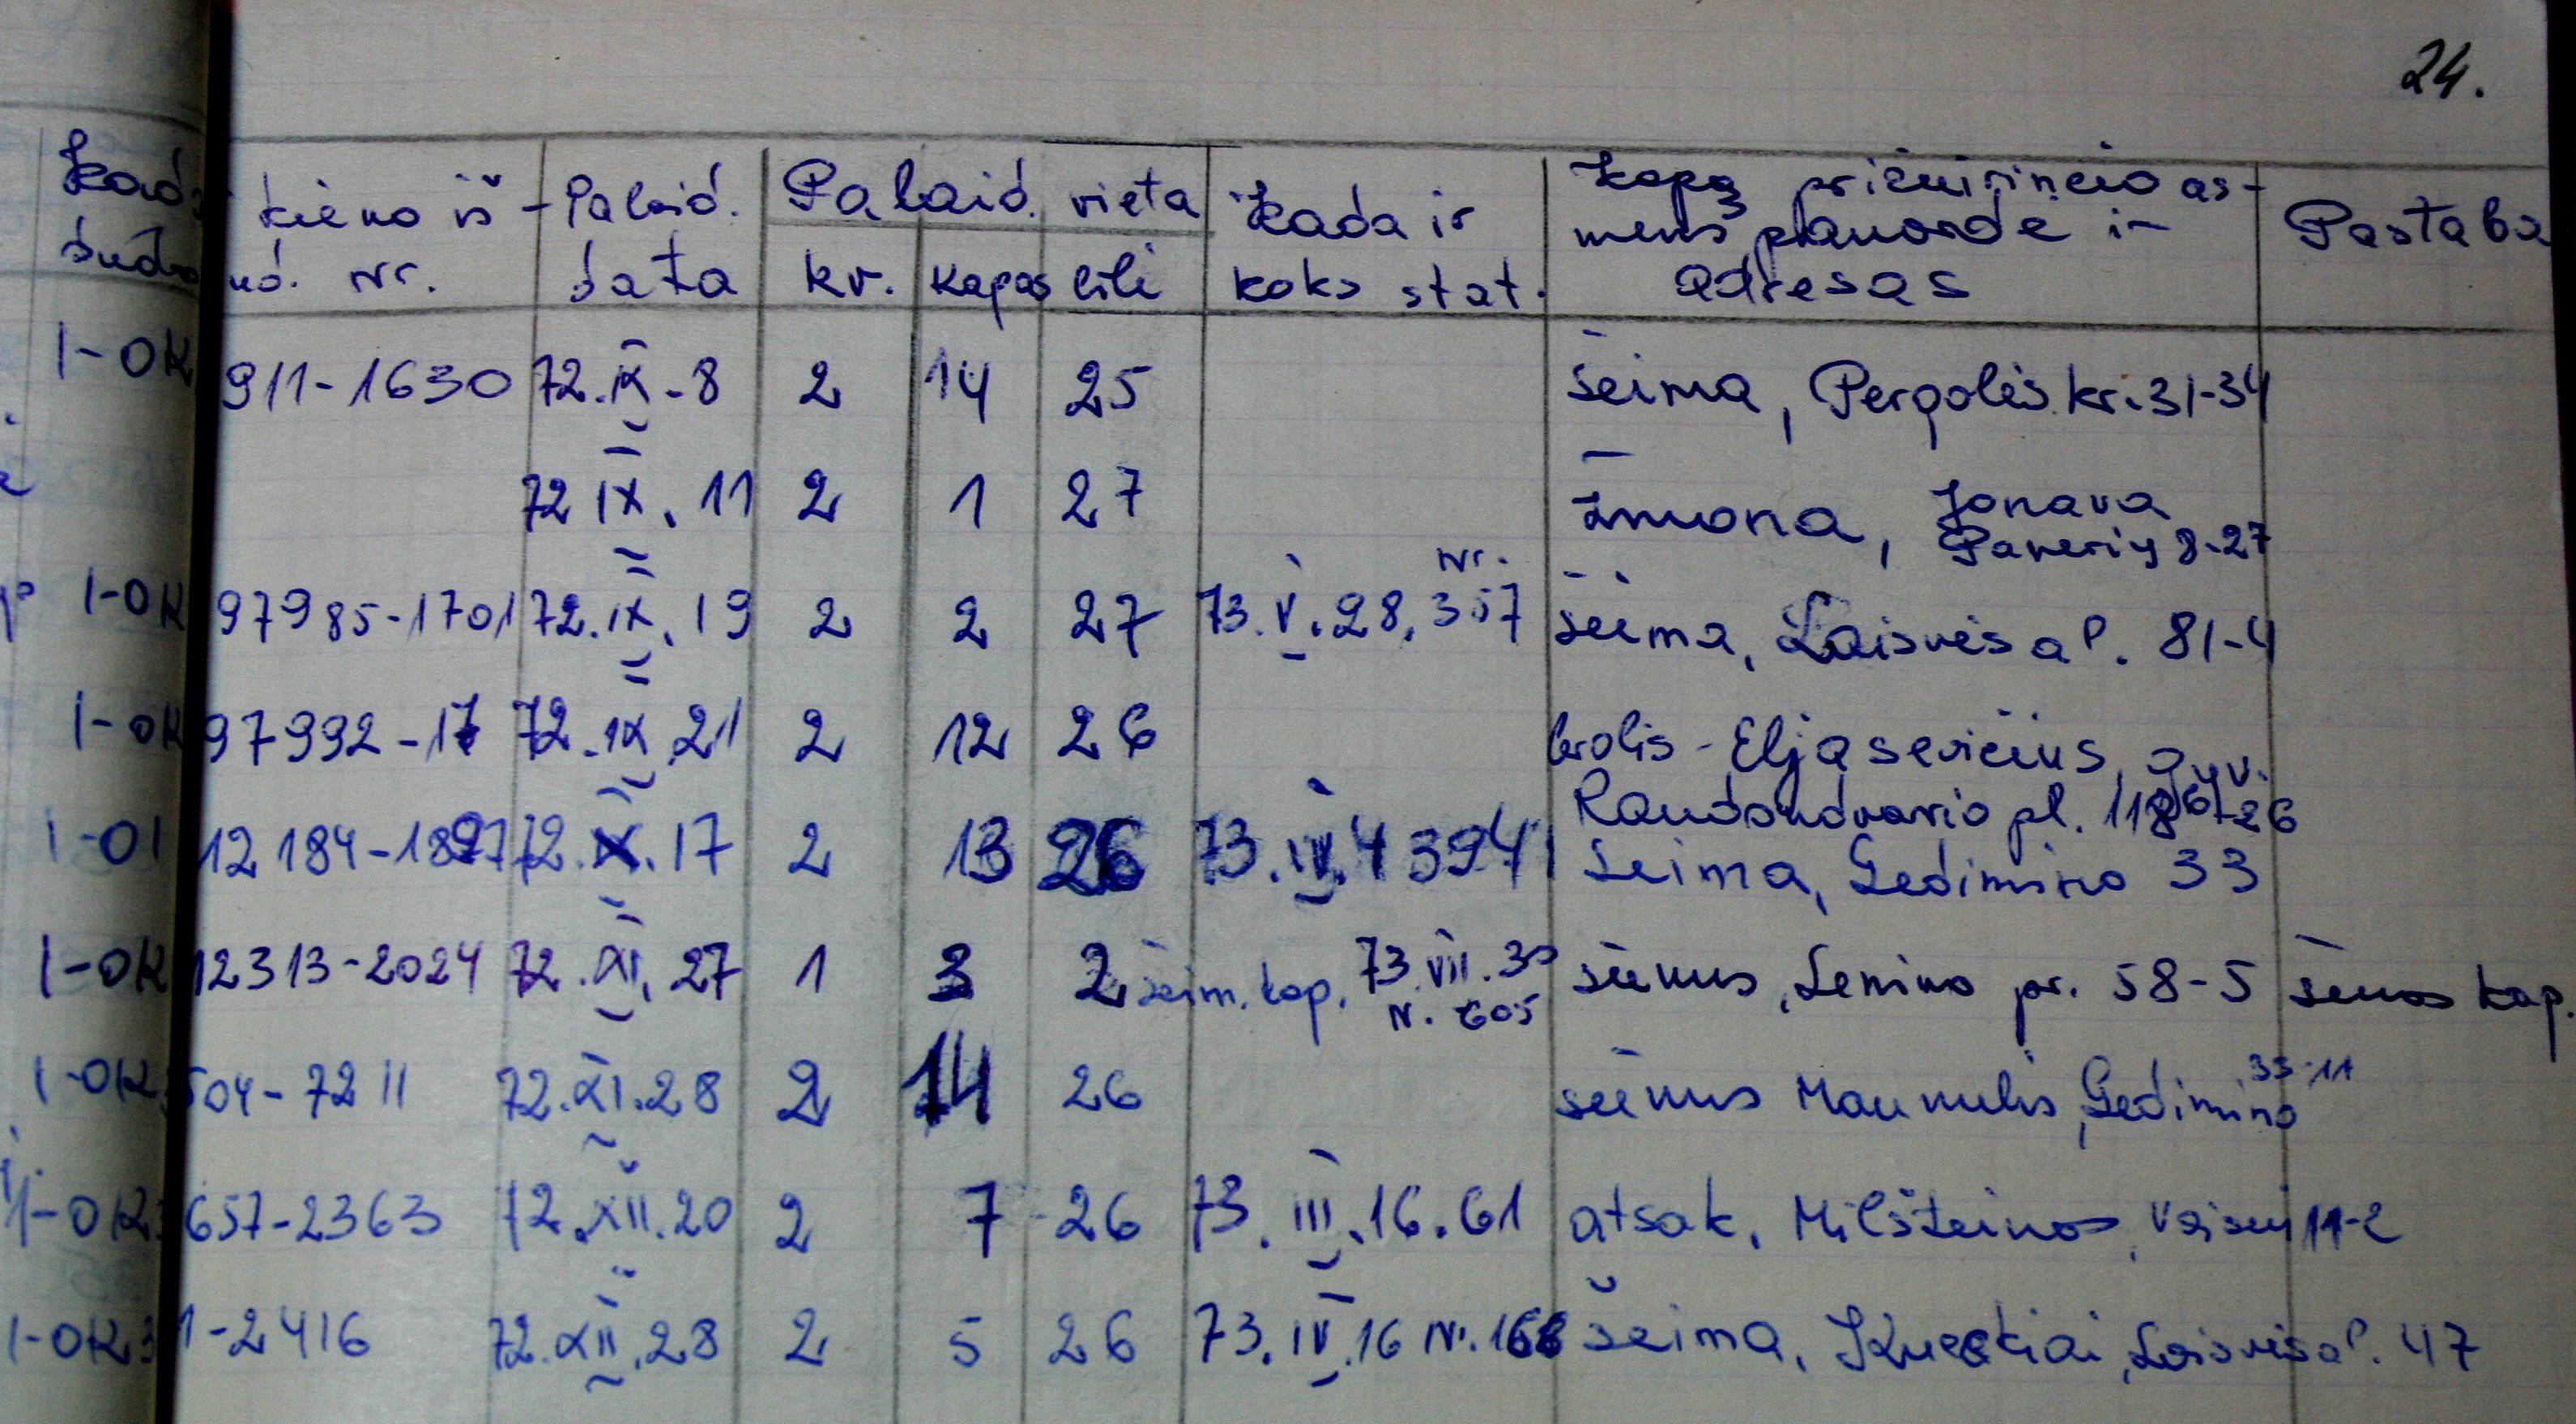 24.
kieno iš- Palaid. Palaid. vieta Kada ir Kapą prižiūrinčio as-
mens pavardė ir Pastaba
nd. Nr. data kv. kapas eilė koks stat. adresas
1-OK 911-1630 72.IX-8 2 14 25 šeima, Pergalės kr. 31-34
72 IX. 11 2 1 27 žmona, Jonava
8-27
Nr.
1-OK 97985-1701 72.IX.19 2 2 27 73.V.28, 357 šeima, Laisvės al. 81-4
1-OK 97992-17 72.IX.21 2 12 26 brolis-Eljasevičius, gyv.
Raudondvario pl. 26
12184-1897 72.X.17 2 13 26 73.IV.4 3941 šeima, Gedimino 33
1-OK 12313-2024 72.XI.27 1 3 2 šeim. kap. 73.VII.30 sūnus, Lenino pr. 58-5 šeimos kap.
N. 605
33-11
1-OK 504-7211 72.XI.28 2 14 26 sūnus Gedimino
1-OK 657-2363 72.XII.20 2 7 26 73.III.16.61 atsak. Milšteinas, 11-2
1-OK 1-2416 72.XII.28 2 5 26 73.IV.16 Nr. 166 šeima, Laisvės al. 47